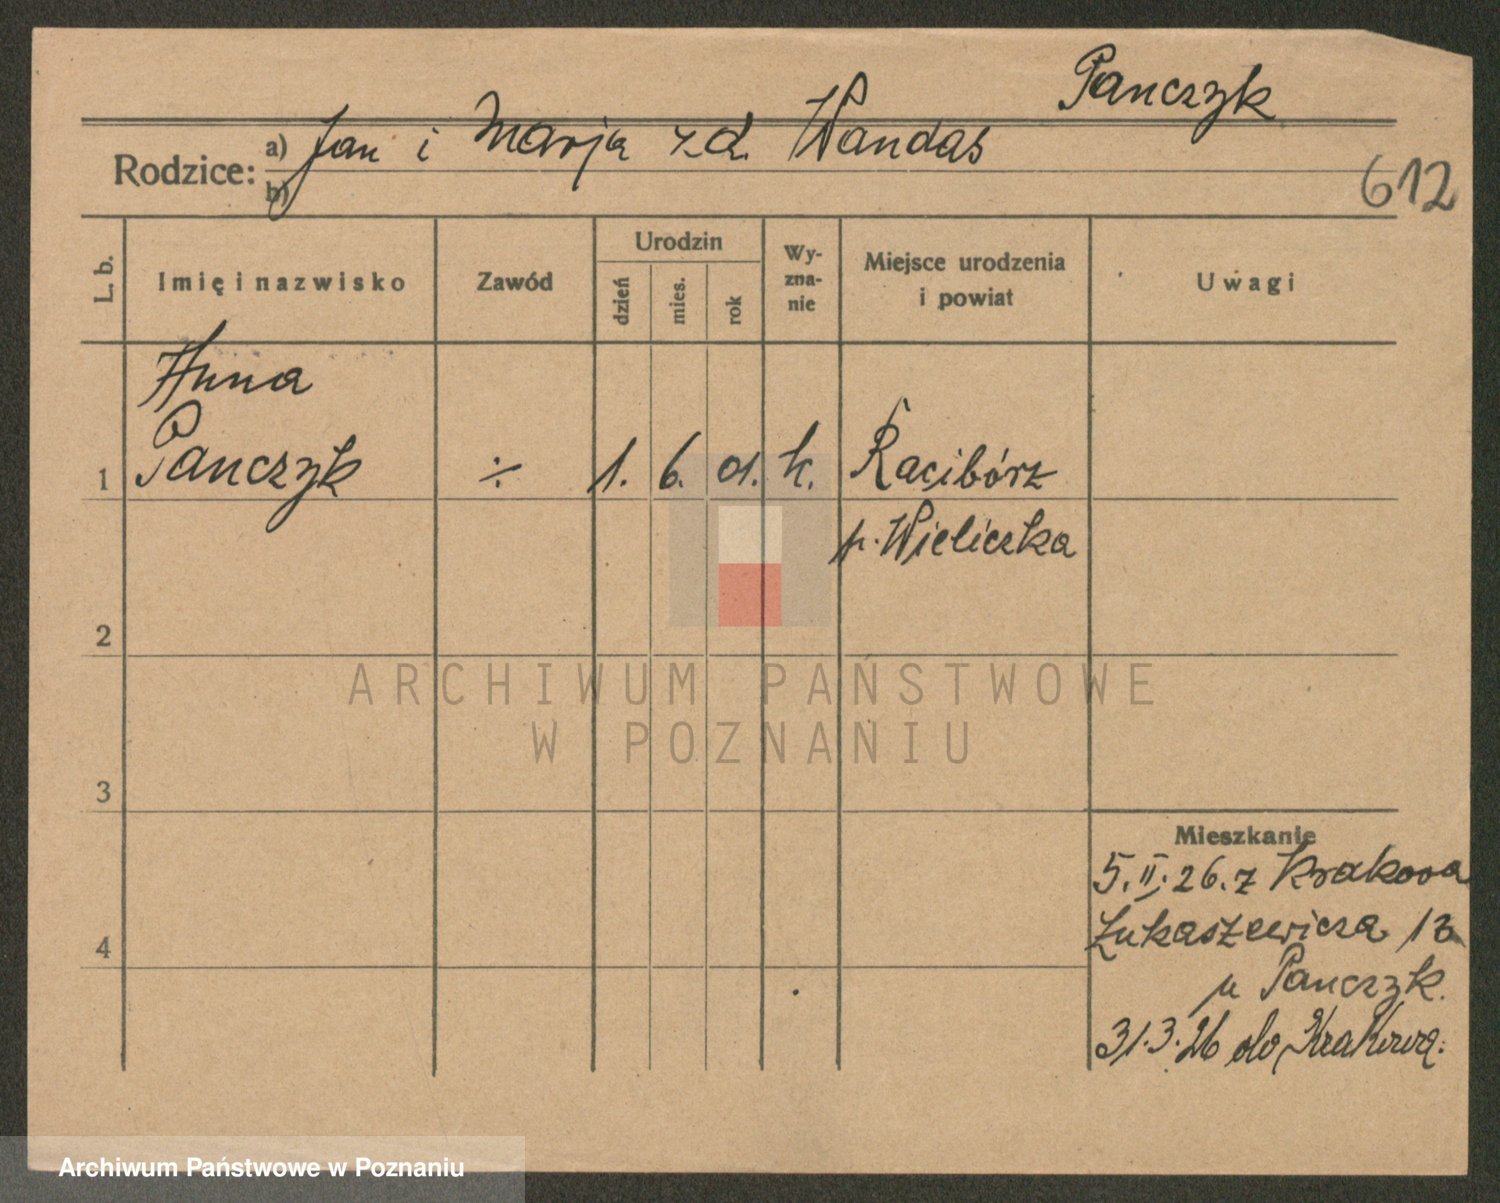 Panczyk
Rodzice: a) Jan i Marja z d. Wandas
b)
612
L. b.
Imię i nazwisko
Zawód
Urodzin
dzień
mies.
rok
Wy-
zna-
nie
Miejsce urodzenia
i powiat
Uwagi
Anna
1 Panczyk ÷ 1. 6. 01. k. Racibórz
p. Wieliczka
2
ARCHIWUM PAŃSTWOWE
W POZNANIU
3
Mieszkanie
5.II.26. z Krakowa
4 Łukaszewicza 13
u Panczyk.
31.3.26 do Krakowa.
Archiwum Państwowe w Poznaniu